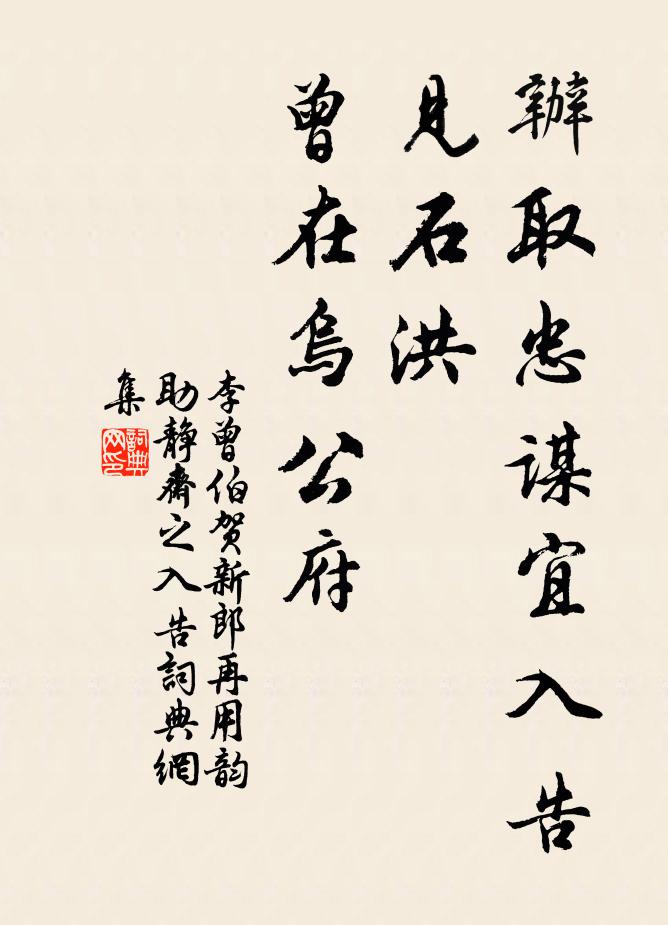 辦取忠謀宜入告
見石洪
曾在烏公府
李曾伯賀新郎再用韵
助靜齋之入告詞典網
集
詞典
网印